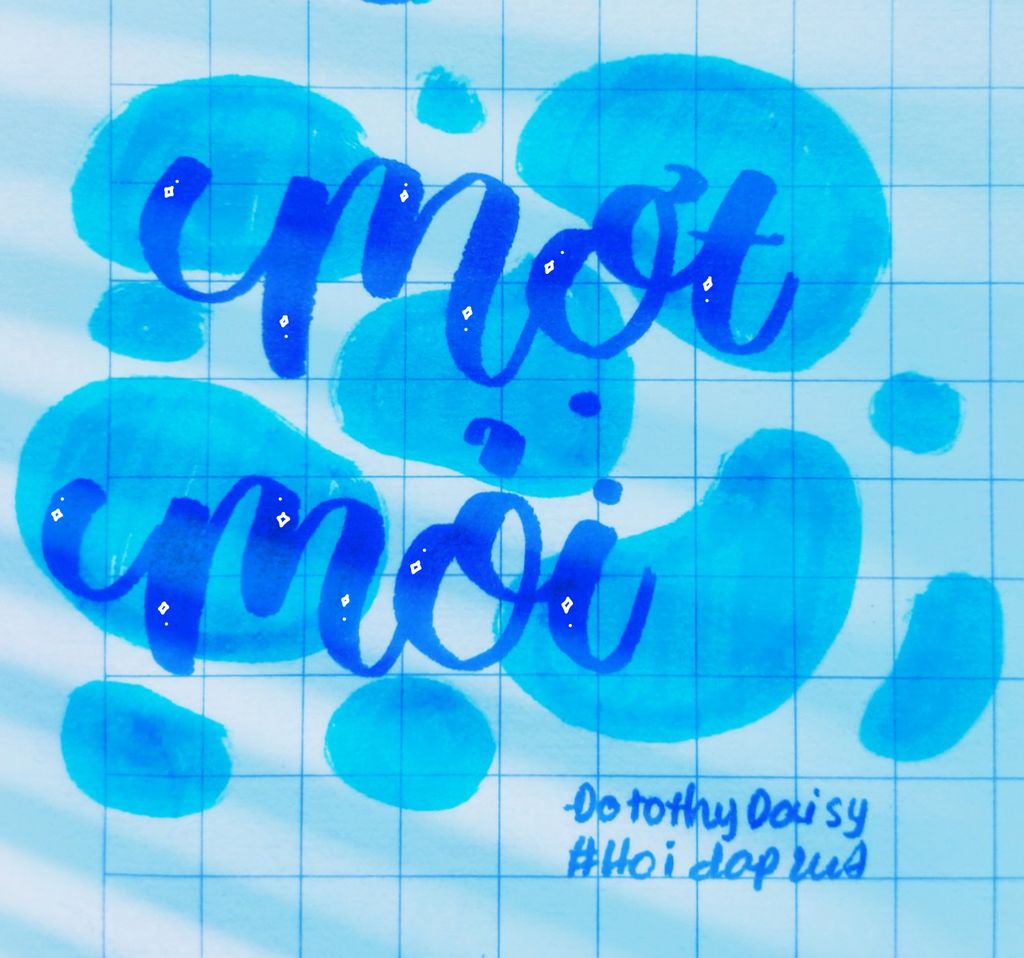 mợt
mỏi
DorothyDaisy
#Hoidap247